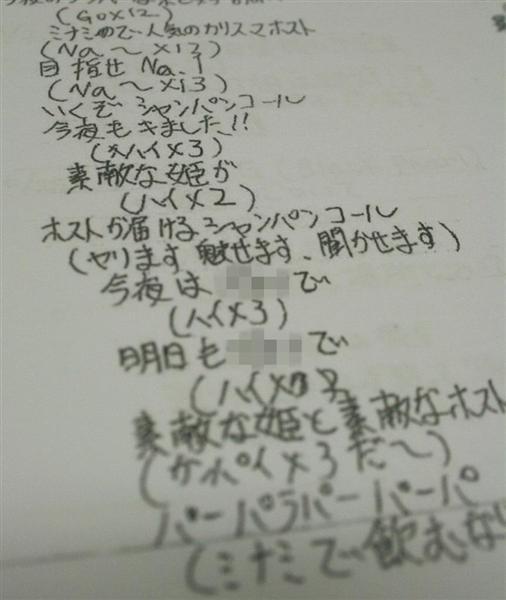 (Gox12)
ミナミので人気のカリスマホスト
(Na〜x13)
目指せ Na.1
(Na〜x13)
いくぞ シャンパンコール
今夜もきました!!
(ハイ×3)
素敵な姫が
(ハイ×2)
ホストが届けるシャンパンコール
(ヤリます、魅せます、聞かせます)
今夜は で
(ハイ×3)
明日も で
(ハイ×3
素敵な姫と素敵なホスト
(ケ ×3だ〜)
パーパラパーパーパ
(ミナミで飲むな